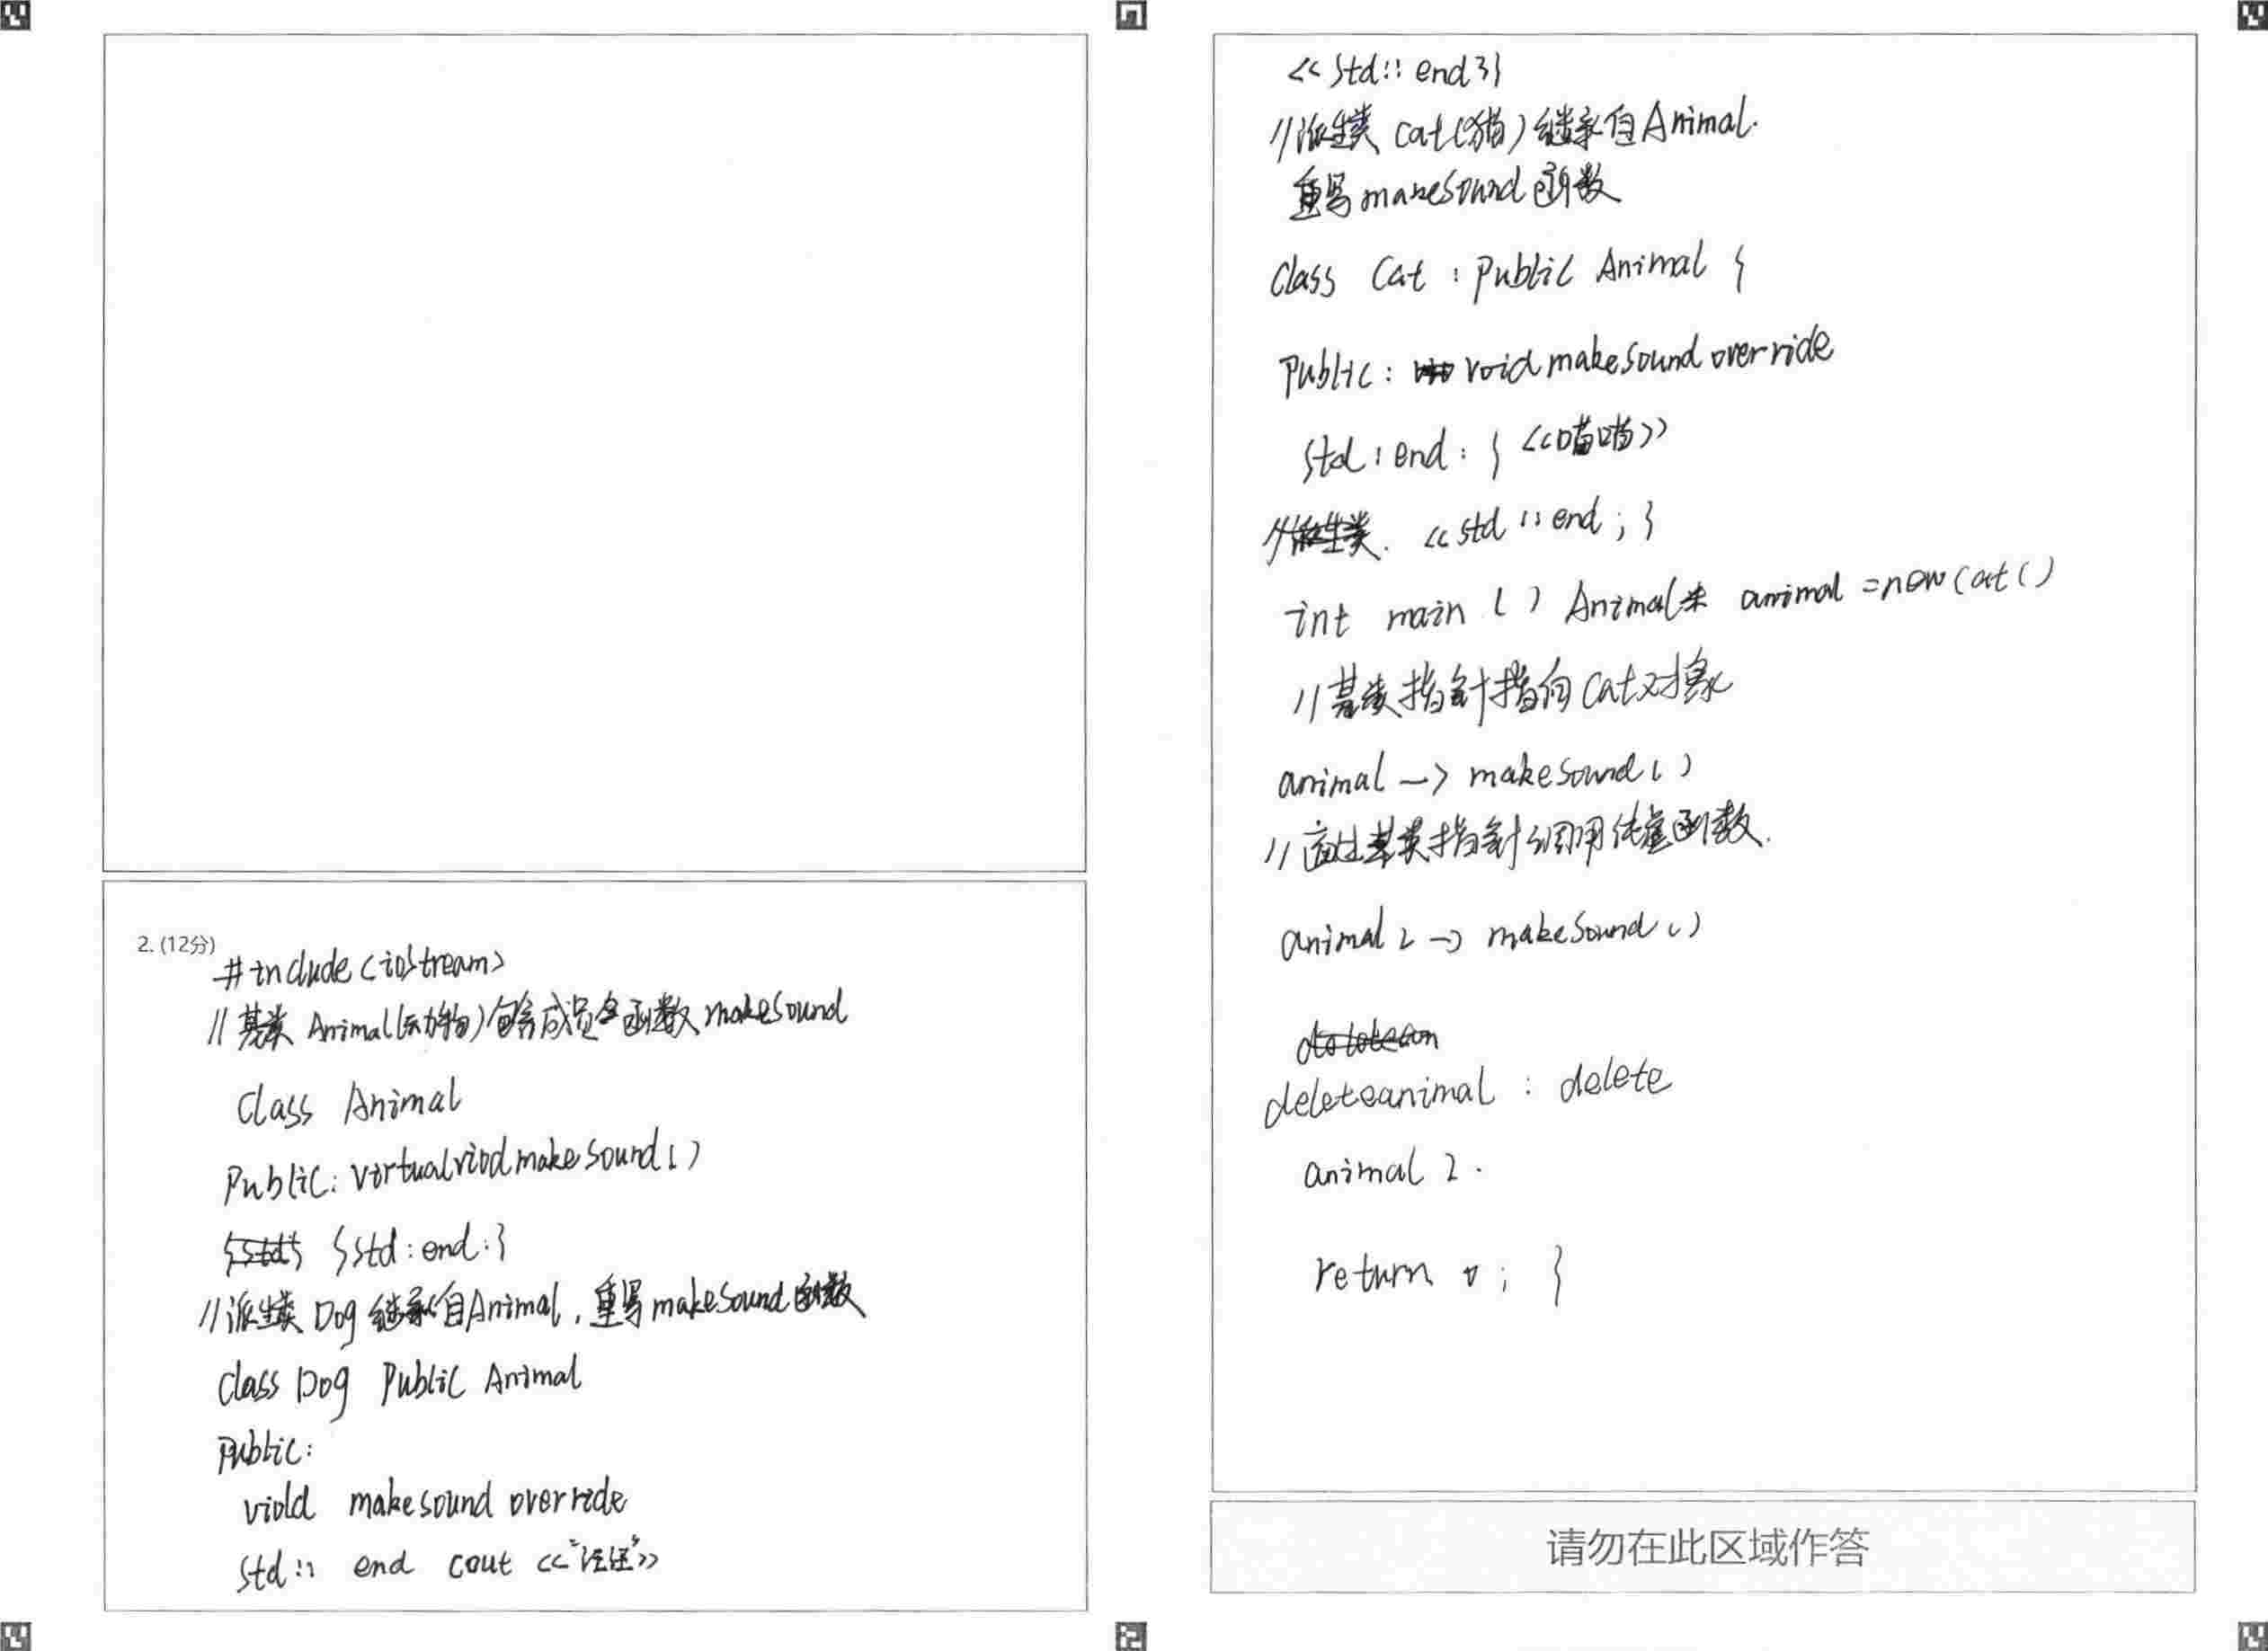 2. (12分)
#include<iostream>
//基类 Animal(动物)包含成员函数 makeSound
Class Animal
Public: virtualviod makeSound()
{std:end:}
//派生类 Dog 继承自Animal,重写makeSound函数
Class Dog Public Animal
Public:
viold makesound override
std:: end cout <<"汪汪">>
<<std:: end}}
//派生类 Cat(猫)继承自Animal.
重写makeSound函数
Class Cat : Public Animal {
Public: void makeSound override
std:end: { <<喵喵>>
<<std :: end ; }
int main () Animal* animal =new Cat()
//基类指针指向Cat对象
animal -> makeSound()
//通过基类指针调用虚函数.
animal 2 -> makeSound()
deleteanimal : delete
animal 2.
return 0; }
请勿在此区域作答